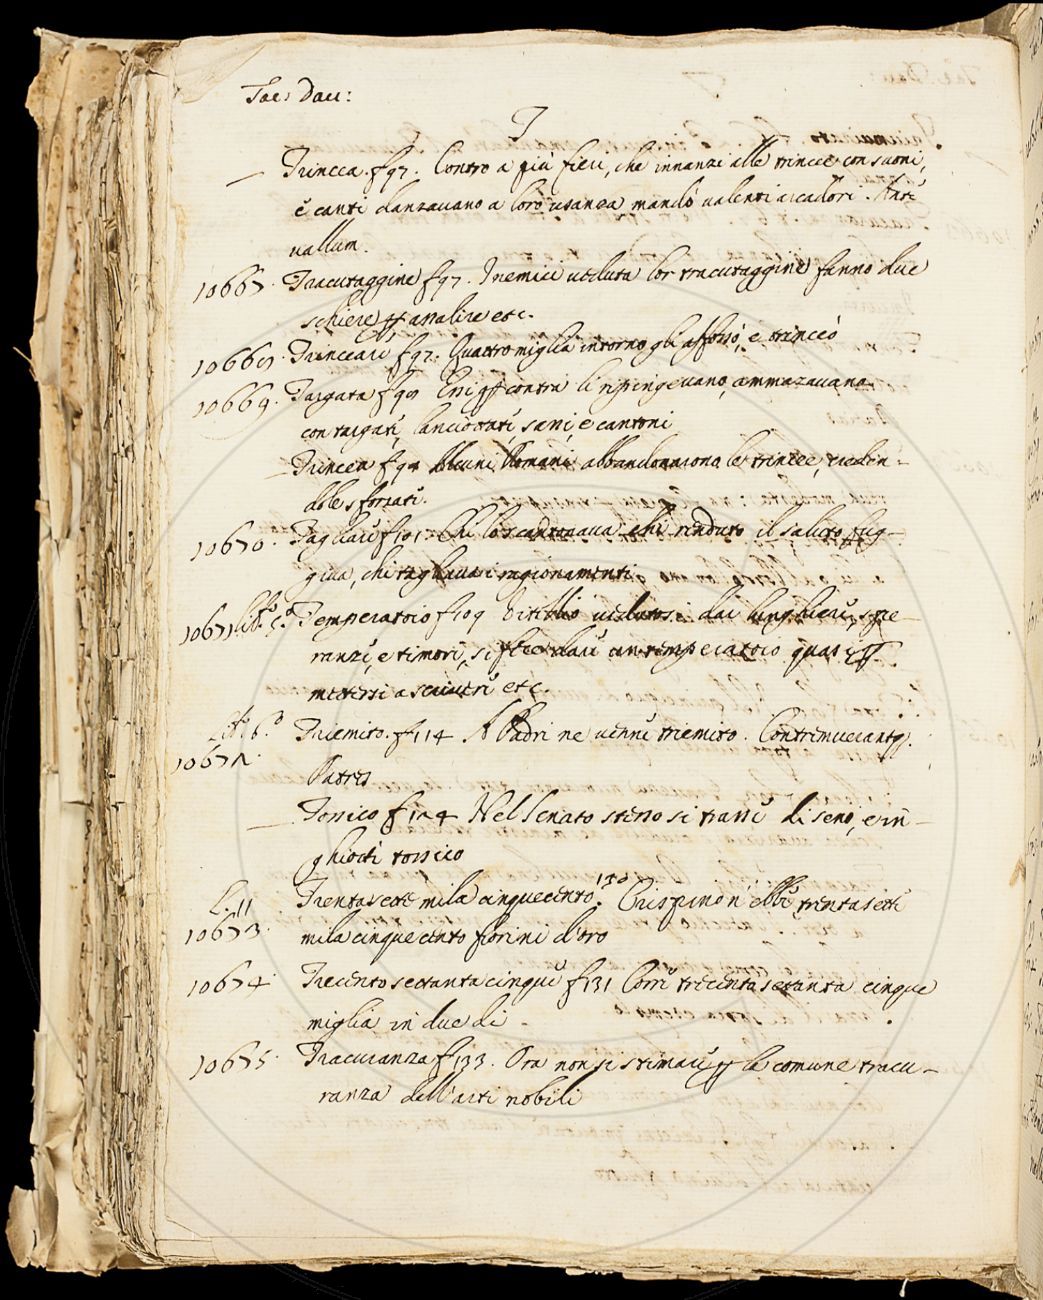 Tac: Dav:
T
— Trincea. f 97. Contro a più fieri, che innanzi alle trincee con suoni,
e canti danzavano a loro usanza mandò valenti arcadori. Ante
vallum.
10667. Tracutaggine f 97. I nemici veduta lor tracutaggine fanno due
schiere p assalire etc.
10668. Trinceare f 97. Quattro miglia intorno gli affossò, e trinceò
10669. Targata f 99 Essi p contra li rispingevano, ammazzavano
con targate, lanciottate, sassi, e cantoni
— Trincea f 99 Alcuni Romani abbandonarono le trincee, creden-
dole sforzate.
10670. Tagliare f 101. Chi lo scantonava chi renduto il saluto fug-
giva, chi tagliava i ragionamenti.
10671 lib. 5.º Temperatoio f 109 Vitellio vedutosi dai lunghieri, spe-
ranze, e timori, si fece dare un temperatoio quasi p
mettersi a scrivere etc.
lib. 6.º Triemito. f 114 A Padri ne venne triemito. Contremuerantq.
10672. Patres
— Tossico f 124 Nel Senato stesso si trasse di seno, e in-
ghiottì tossico
L. 11 Trentasette mila cinquecento. 130 Crispino n'ebbe trentasette
10673. mila cinque cento fiorini d'oro
10674. Trecento settanta cinque f 131 Corre trecento settanta cinque
miglia in due dì.
10675. Tracuranza f 133. Ora non si stimare p la comune tracu-
ranza dell'arti nobili